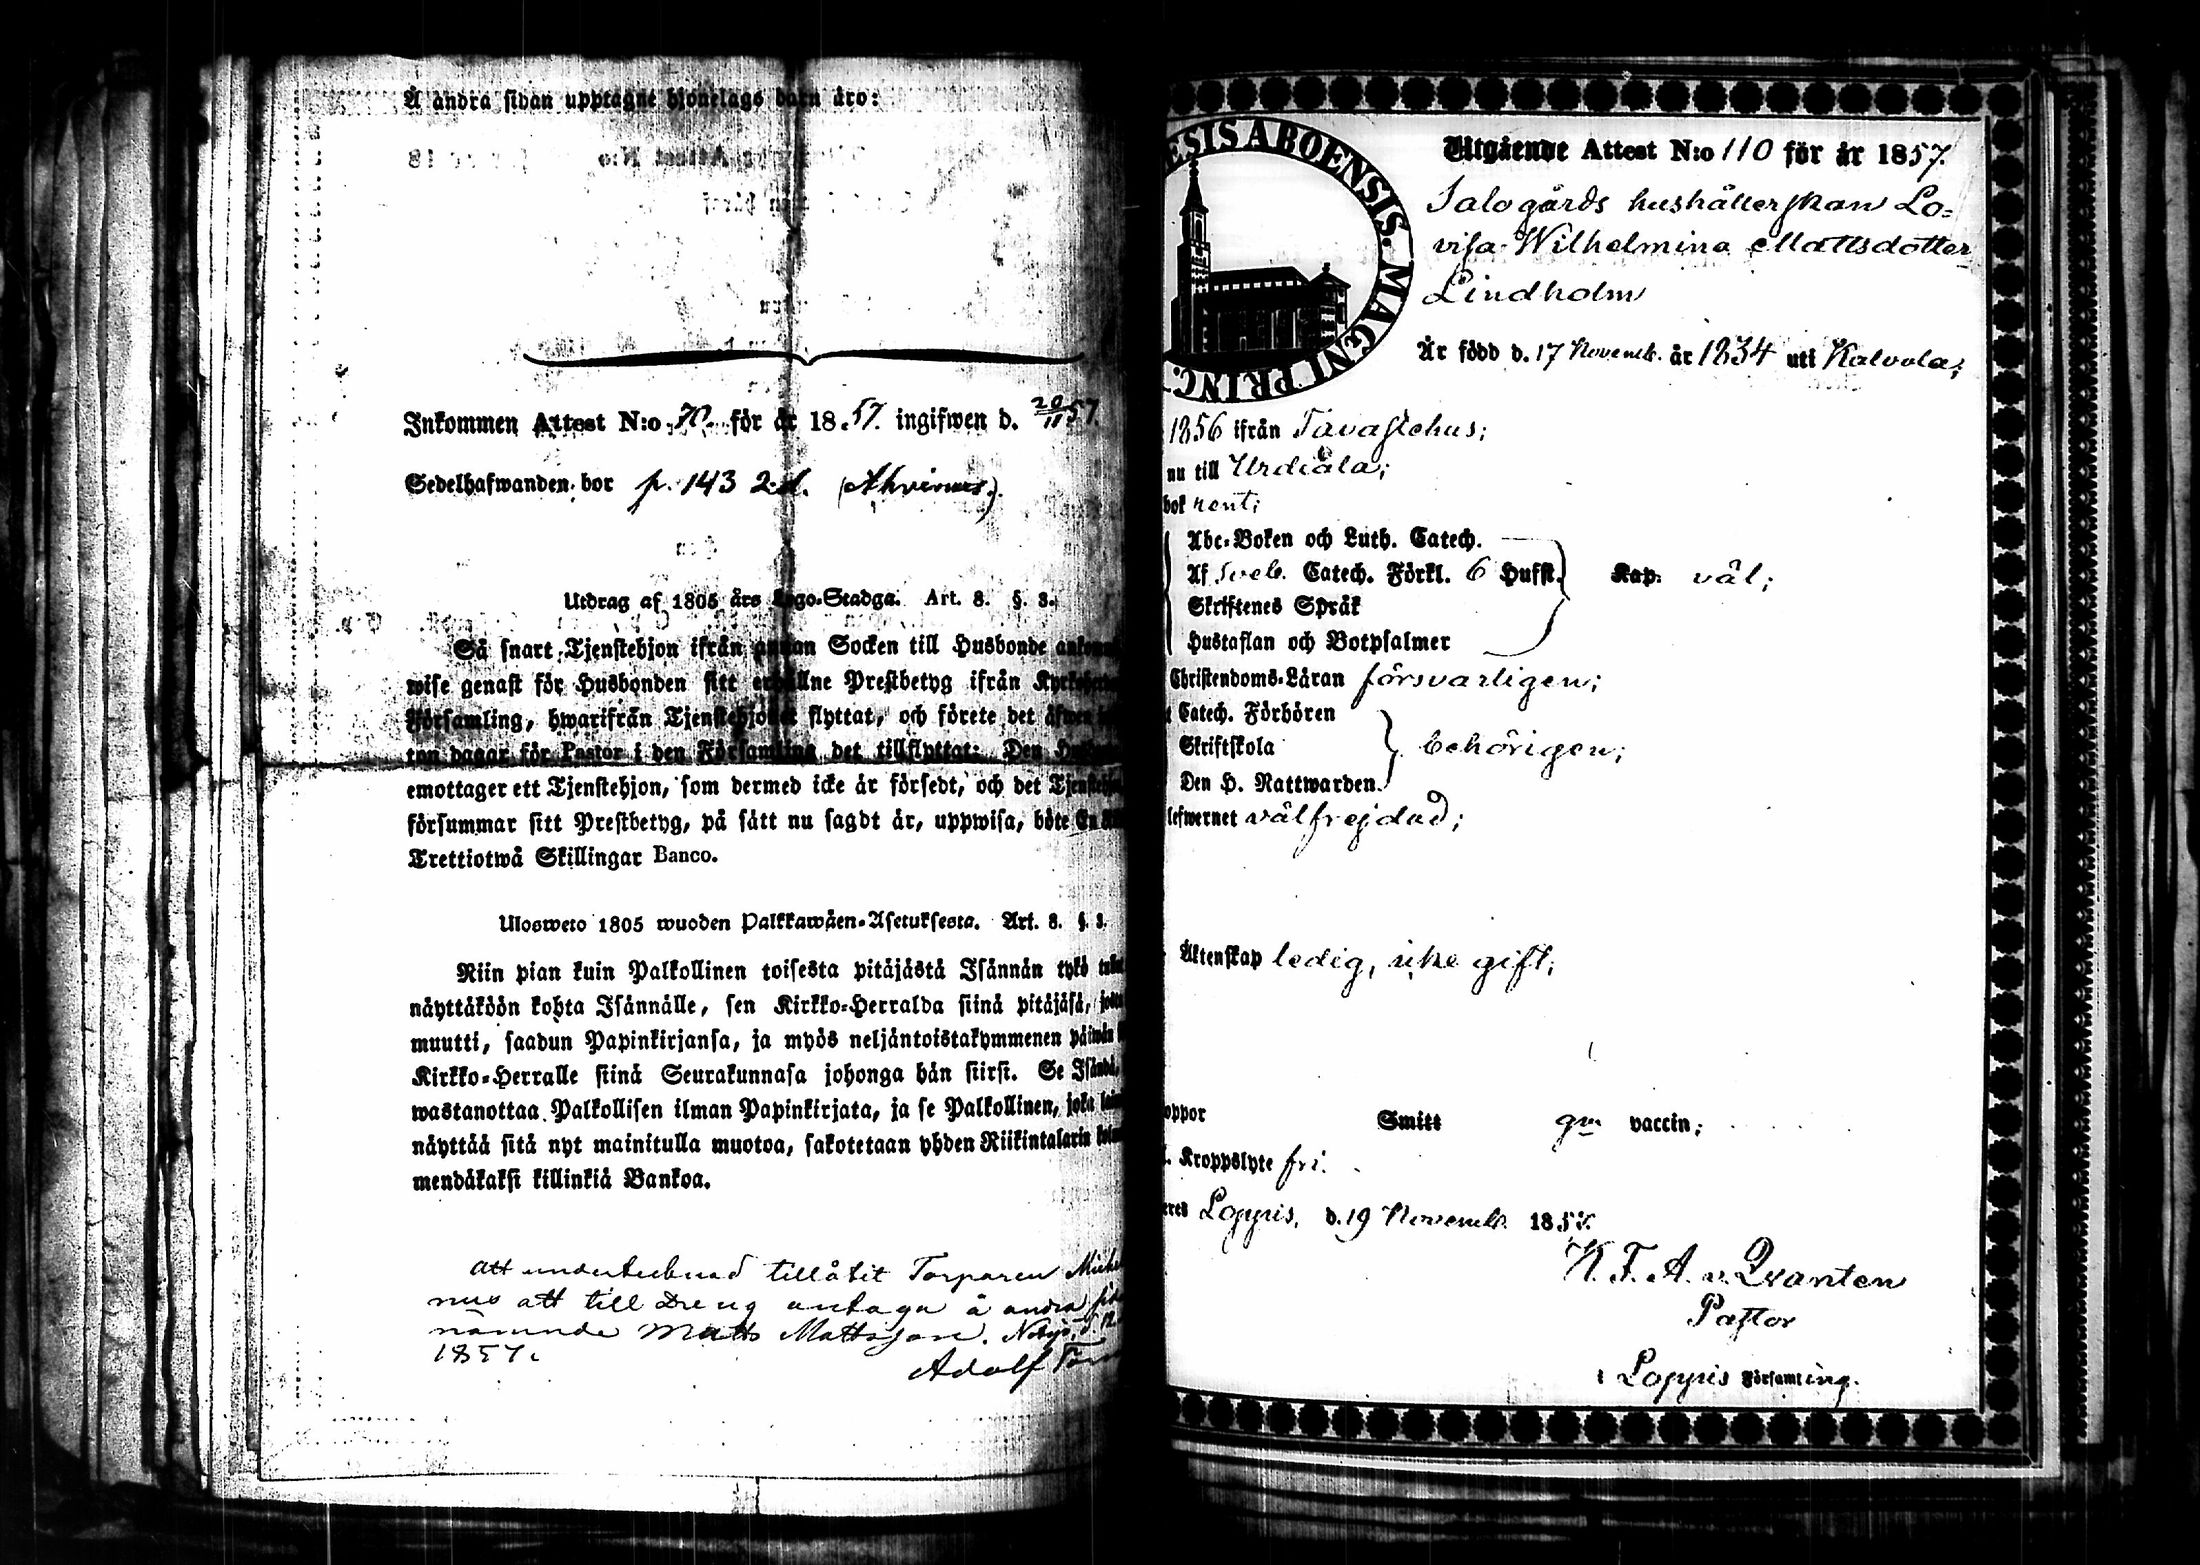 Å andra sidan upptagne hjonelags barn äro:
Inkommen Attest N:o 70. för år 1857. ingifwen d. 20/11 57.
Sedelhafwanden bor p. 143 2:d.
Utdrag af 1805 års Lego-Stadga. Art. 8. §. 3.
Så snart Tjenstehjon ifrån annan Socken till Husbonde
wise genast för Husbonden sitt erhållne Prestbetyg ifrån
Församling, hwarifrån Tjenstehjonet flyttat, och förete det äfwen
ton dagar för Pastor i den Församling det tillflyttat: Den
emottager ett Tjenstehjon, som dermed icke är försedt, och det
försummar sitt Prestbetyg, på sätt nu sagdt är, uppwisa, böte En
Trettiotwå Skillingar Banco.
Ulosweto 1805 wuoden Palkkawäen-Asetuksesta. Art. 8. §. 3.
Niin pian kuin Palkollinen toisesta pitäjästä Isännän tykö
näyttäköön kohta Isännälle, sen Kirkko-Herralda siinä pitäjäsä,
muutti, saadun Papinkirjansa, ja myös neljäntoistakymmenen päiwän
Kirkko-Herralle siinä Seurakunnasa johonga hän siirst. Se
wastanottaa Palkollisen ilman Papinkirjata, ja se Palkollinen, joka
näyttää sitä nyt mainitulla muotoa, sakotetaan yhden Riikintalarin
mendäkaksi killinkiä Bankoa.
Att undertecknad tillåtit Torparen
nus att till Dreng antaga å andra
nämnde Matts Mattsson.
1857.
Adolf
ESIS ABOENSIS. MAGNI PRINC.
Utgående Attest N:o 110 för år 1857.
Salogårds hushållerskan Lo-
visa Wilhelmina Mattsdotter
Lindholm
Är född d. 17 Novemb. år 1834 uti Kalvola;
1856 ifrån Tavastehus;
nu till Urdiala;
bok rent;
Abc-Boken och Luth. Catech.
Af Sveb. Catech. Förkl. 6 Hufst. Kap. väl;
Skriftenes Språk
Hustaflan och Botpsalmer
Christendoms-Läran försvarligen;
Catech. Förhören
Skriftskola behörigen;
Den H. Nattwarden
lefwernet välfrejdad;
Äktenskap ledig, icke gift;
oppor Smitt gm vaccin;
Kroppslyte fri.
eres Loppis, d. 19 Novemb. 1857.
K. F. A. v. Qvanten
Pastor
i Loppis Församling.